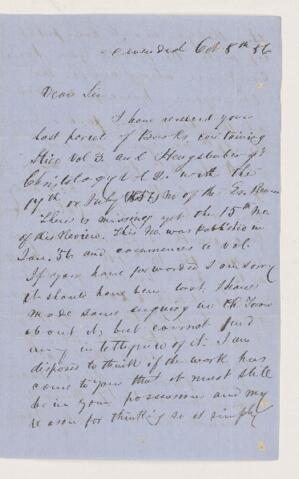 Oct 8th 56
Dear Sir
I have received your
last parcel of Books containing
Vol 3. and Hengstenberg's
Christology Vol 2. with the
17th or July (56) No of the Ev. Review
There is missing yet the 15th No.
of this Review. This No. was published in
Jan. 56 and commences a vol.
If you have forwarded I am sorry
it should have been lost. I have
made some enquiry in the Town
about it, but cannot find
any intelligence of it. I am
disposed to think if the work has
come to you that it must still
be in your possession and my
reason for thinking so is simply